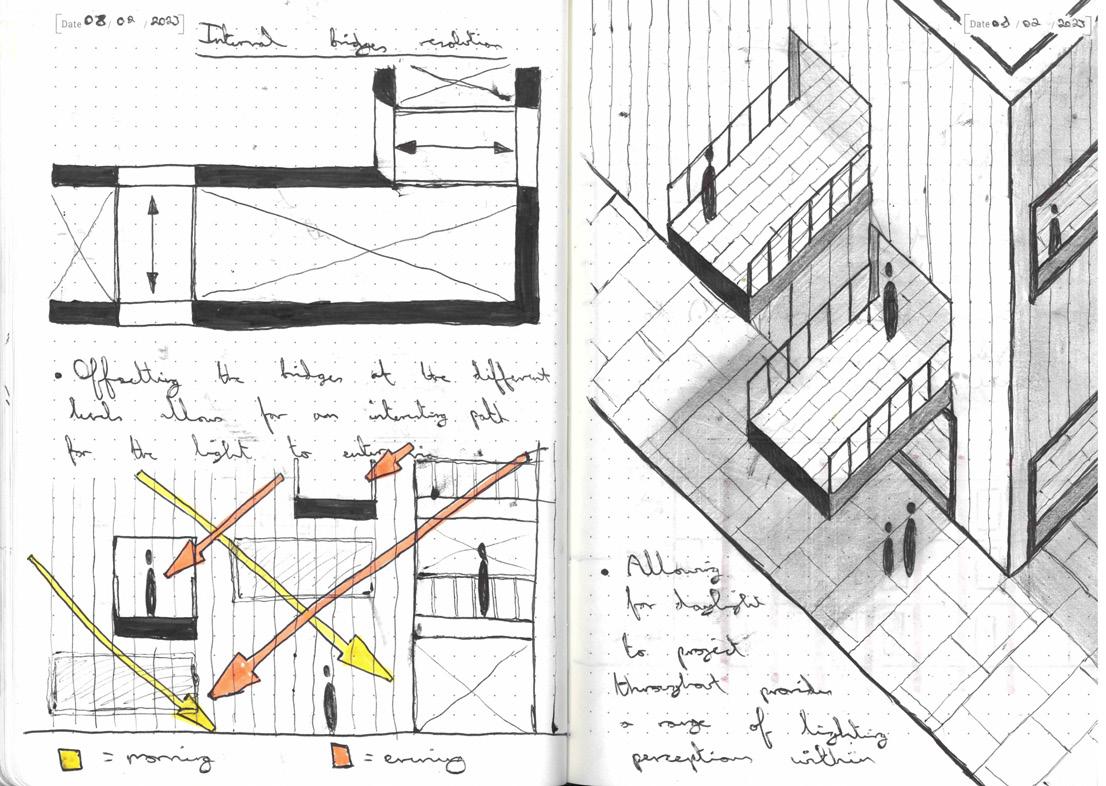 [Date 08 / 02 / 2023]
Internal bridges resolution
• Offsetting the bridges at the different
levels allows for an interesting path
for the light to enter via
= morning
= evening
[Date 08 / 02 / 2023]
• Allowing
for daylight
to project
throughout provides
a range of lighting
perceptions within